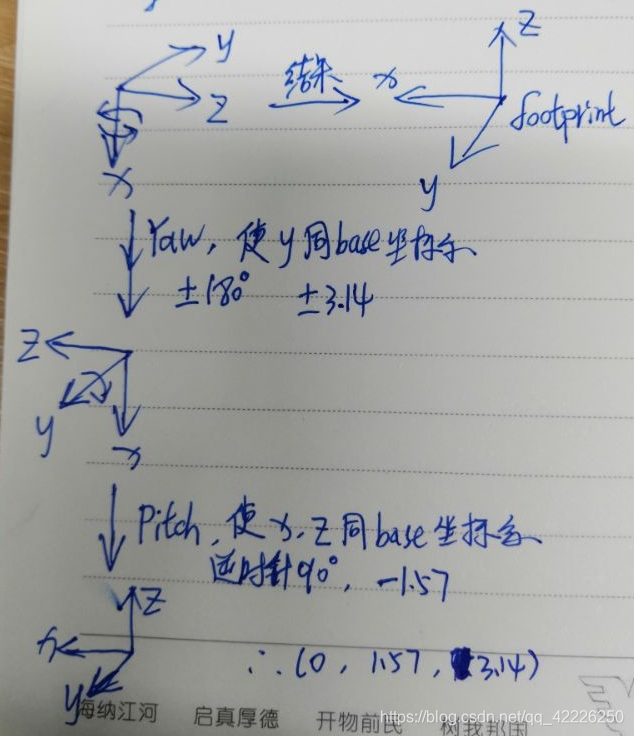 y
z
x
结果
z
x
footprint
y
Yaw, 使y同base坐标系
±180° ±3.14
z
y
x
Pitch, 使x、z同base坐标系
逆时针90°, -1.57
z
x
y
∴ (0, 1.57, 3.14)
海纳江河 启真厚德 开物前民 树我邦国
https://blog.csdn.net/qq_42226250